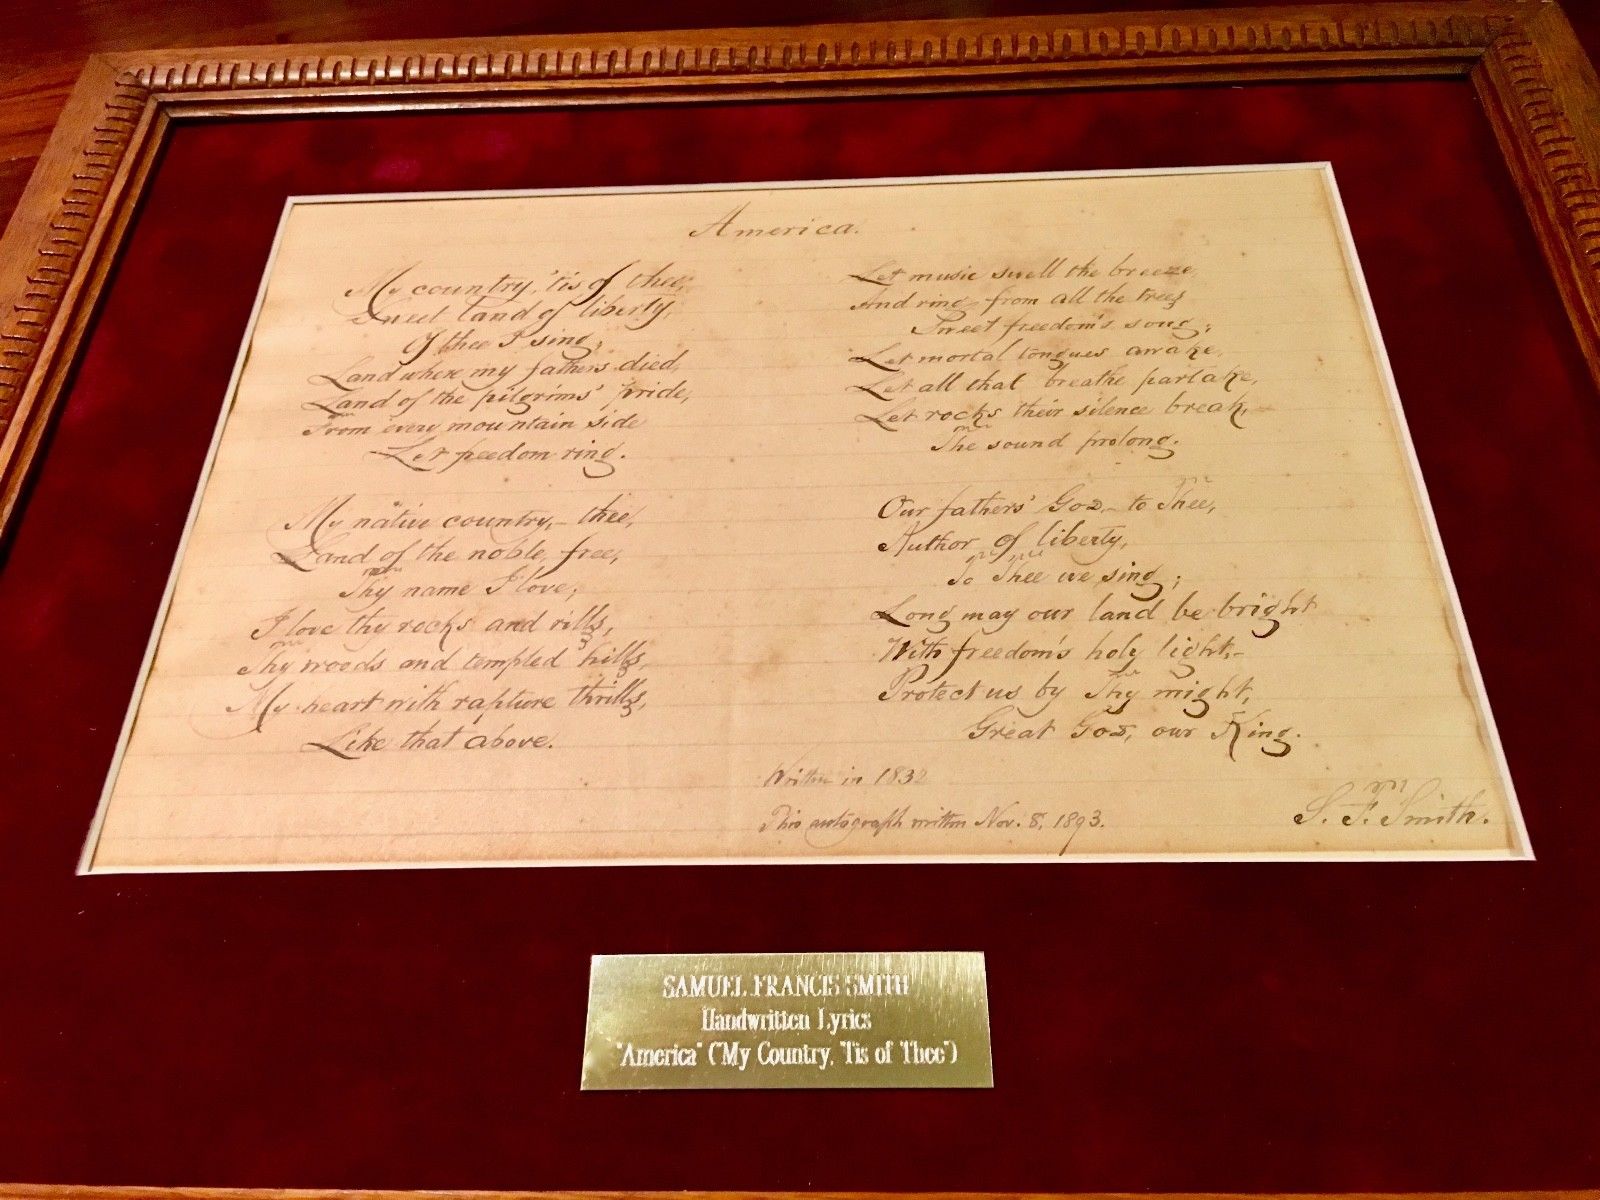 America.
My country, 'tis of thee,
Sweet land of liberty,
Of thee I sing;
Land where my fathers died,
Land of the pilgrims' pride,
From every mountain side
Let freedom ring.
My native country, – thee,
Land of the noble, free,
Thy name I love;
I love thy rocks and rills,
Thy woods and templed hills,
My heart with rapture thrills,
Like that above.
Let music swell the breeze,
And ring from all the trees
Sweet freedom's song;
Let mortal tongues awake,
Let all that breathe partake,
Let rocks their silence break,
The sound prolong.
Our fathers' God, – to Thee,
Author of liberty,
To Thee we sing;
Long may our land be bright
With freedom's holy light, –
Protect us by Thy might,
Great God, our King.
Written in 1832
This autograph written Nov. 8, 1893.
S. F. Smith.
SAMUEL FRANCIS SMITH
Handwritten Lyrics
"America" ("My Country, 'Tis of Thee")